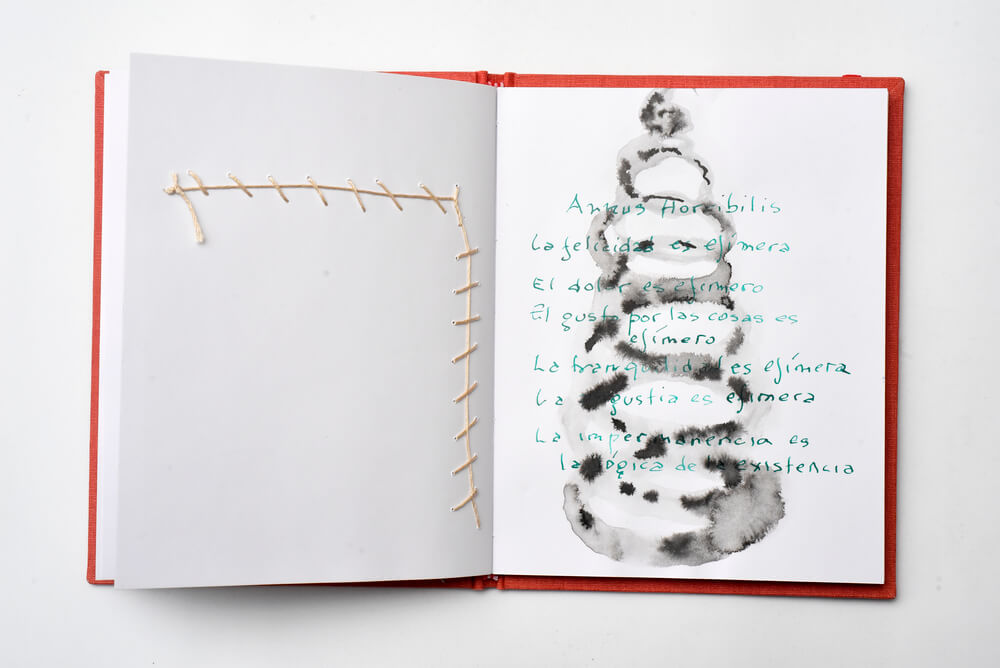 Annus Horribilis
La felicidad es efímera
El dolor es efímero
El gusto por las cosas es
efímero
La tranquilidad es efímera
La angustia es efímera
La impermanencia es
la lógica de la existencia